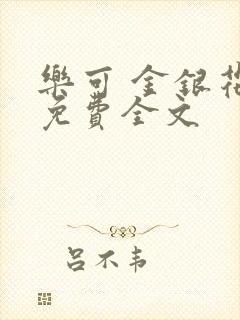 樂可 金銀花
免費全文
呂不韦